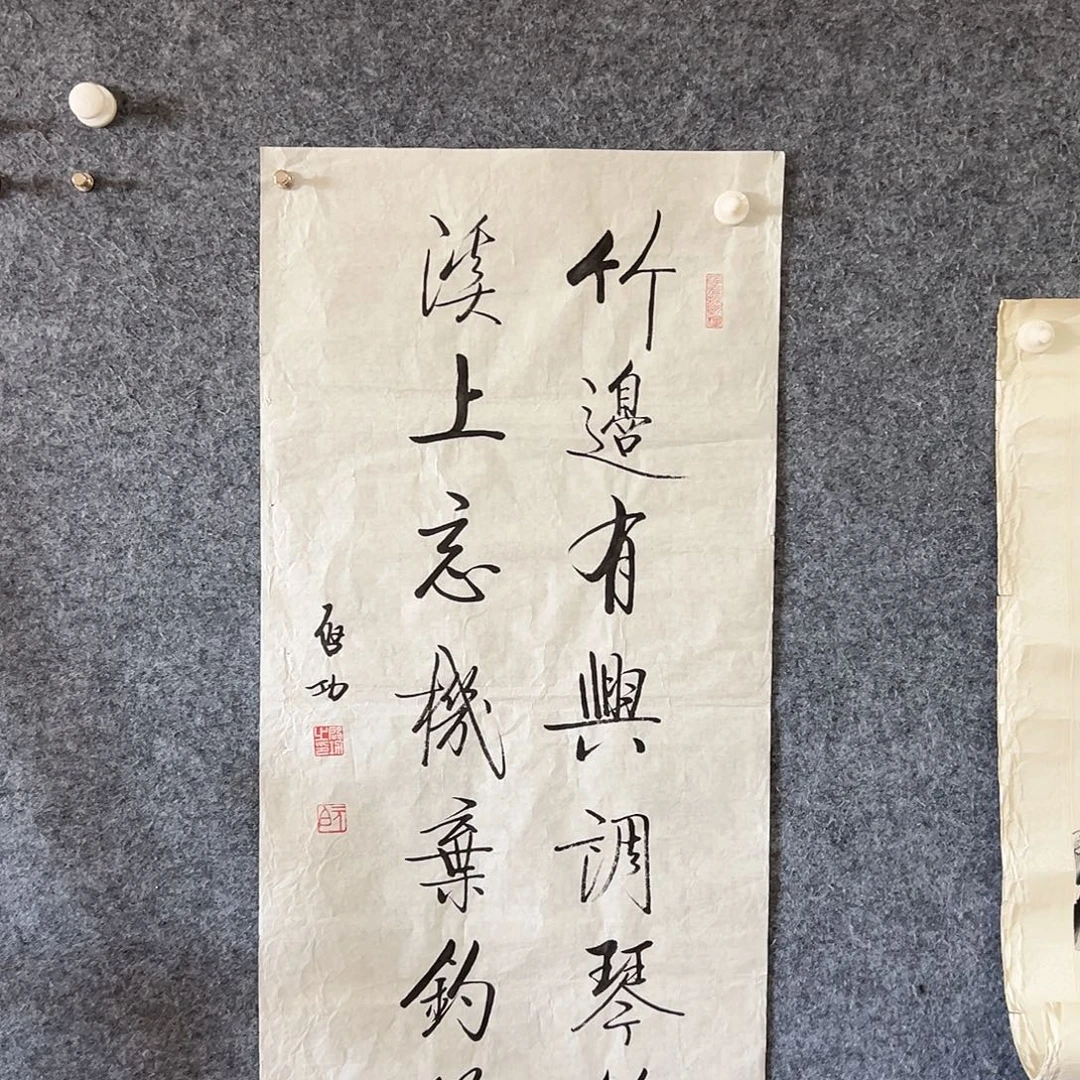 竹邊有興調琴
溪上忘機棄釣
啓功